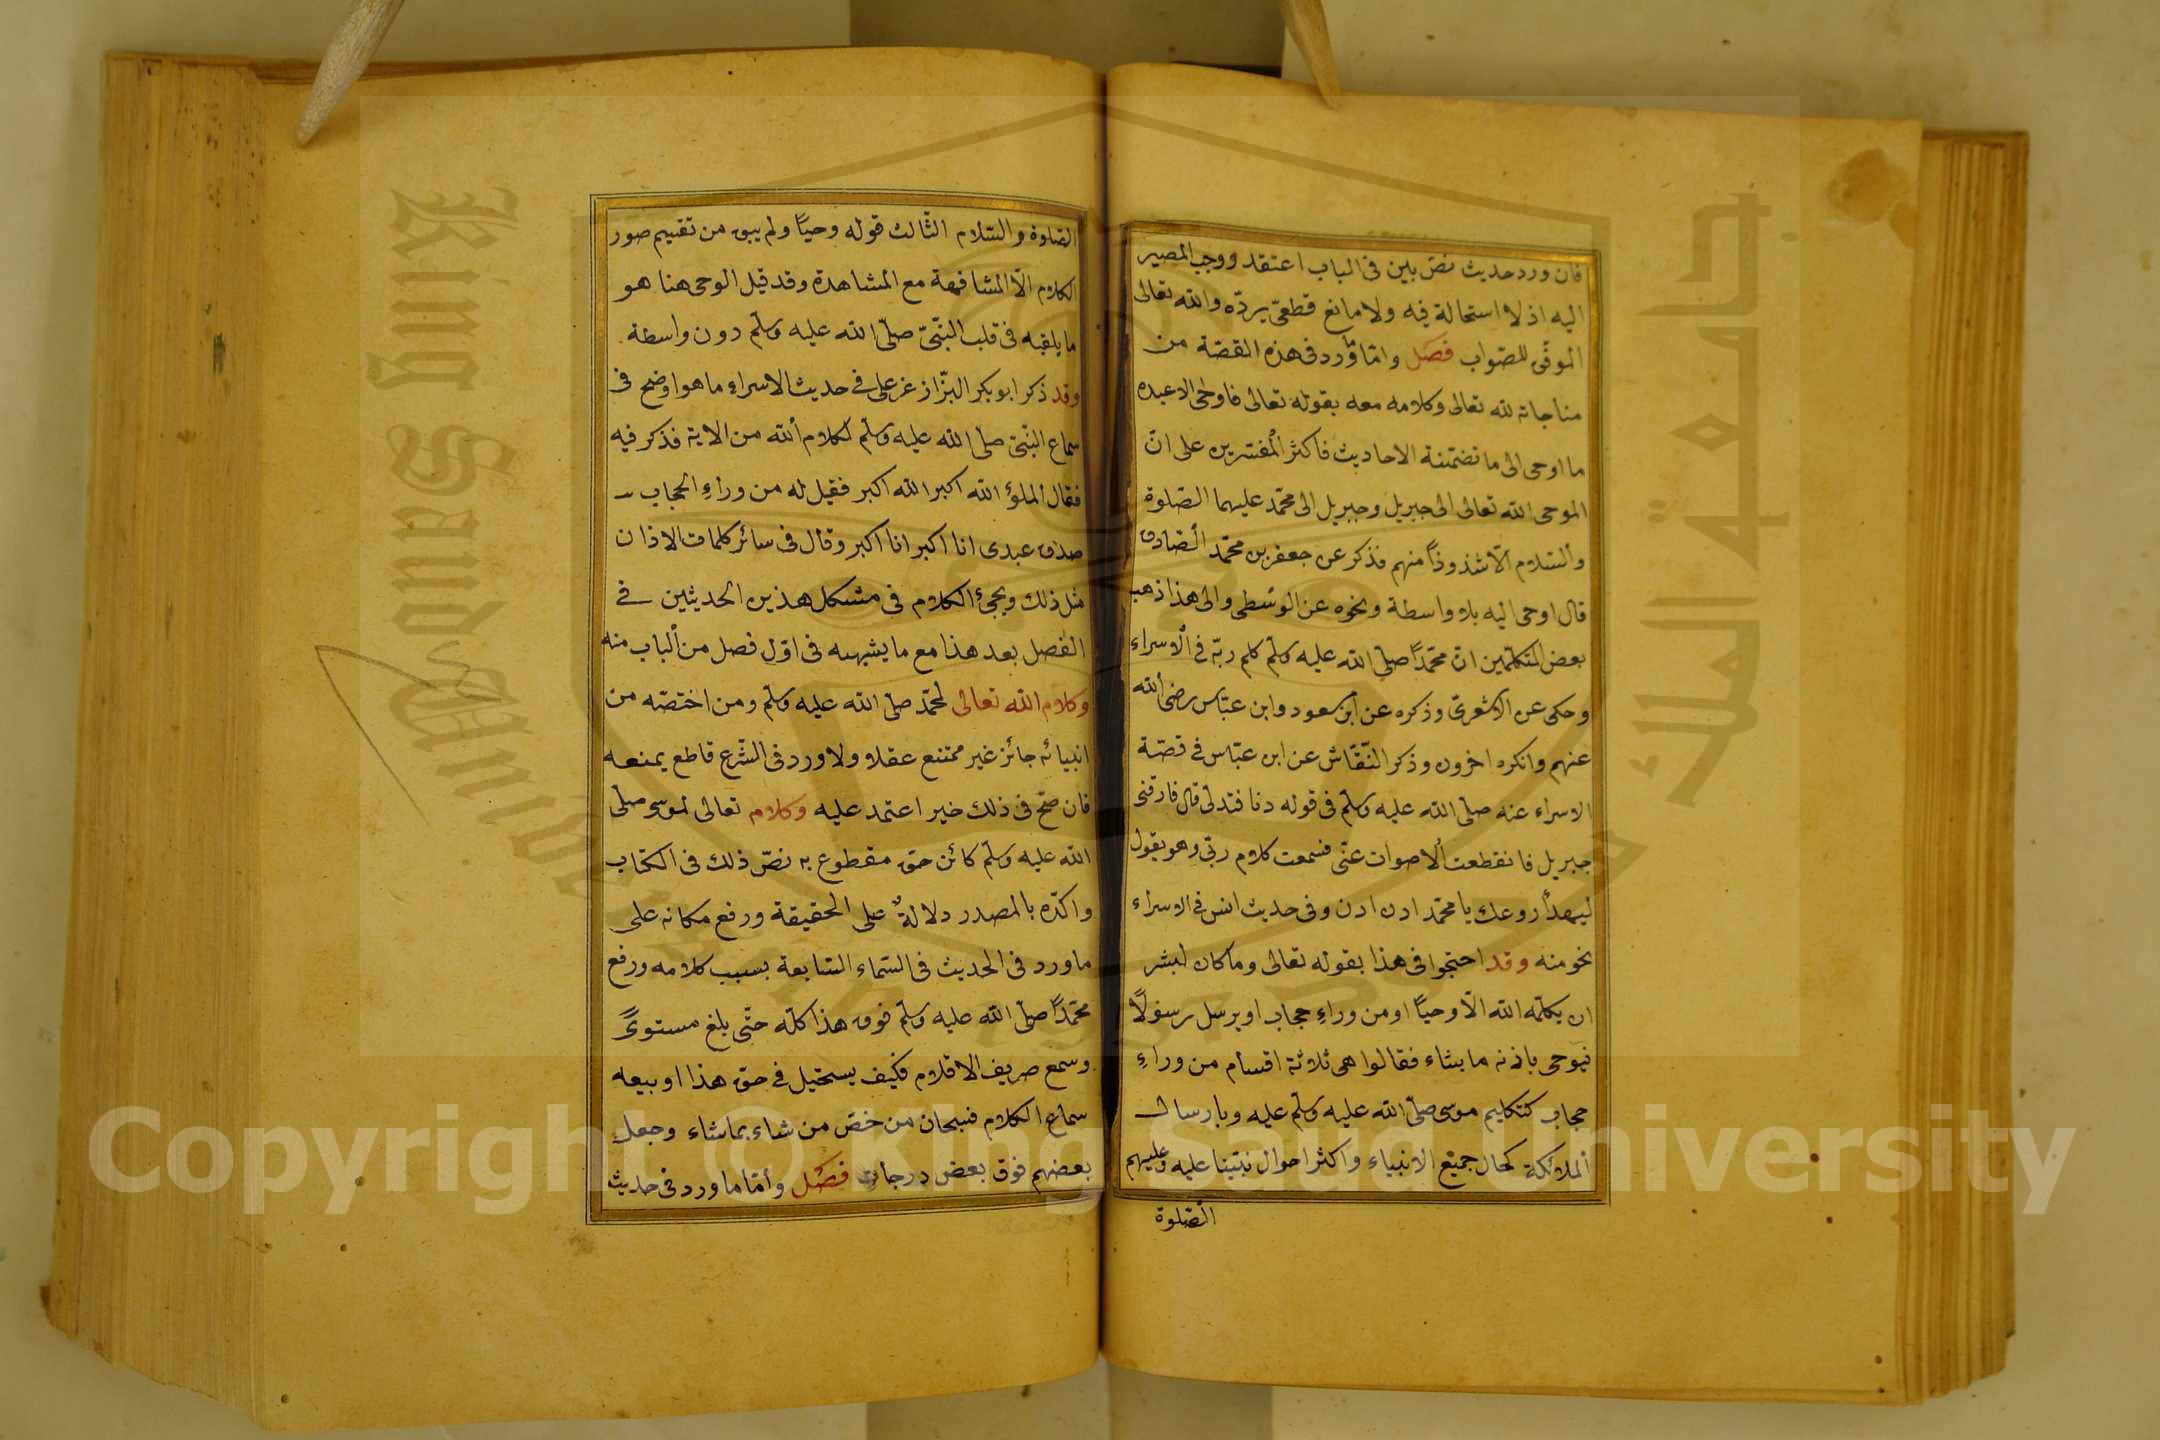 فان ورد حديث نصّ بين فى الباب اعتقد ووجب المصير
اليه اذ لا استحالة فيه ولا مانع قطعىّ يردّه والله تعالى
الموفّق للصّواب فصل وامّا ما ورد فى هذه القصّة من
مناجاته لله تعالى وكلامه معه بقوله تعالى فاوحى الى عبده
ما اوحى الى ما تضمّنته الاحاديث فاكثر المفسّرين على انّ
الموحى الله تعالى الى جبريل وجبريل الى محمّد عليهما الصّلوة
والسّلام الّا شذوذاً منهم فذكر عن جعفر بن محمّد الصّادق
قال اوحى اليه بلا واسطة ونحوه عن الوسطى والى هذا ذهب
بعض المتكلّمين انّ محمّداً صلّى الله عليه وسلّم كلم ربّه فى الاسراء
وحكى عن الاشعرىّ وذكره عن ابن مسعود وابن عبّاس رضى الله
عنهم وانكره اخرون وذكر النّقّاش عن ابن عبّاس فى قصّة
الاسراء عنه صلّى الله عليه وسلّم فى قوله دنا فتدلّى قال فارقنى
جبريل فانقطعت الاصوات عنّى فسمعت كلام ربّى وهو يقول
ليهدأ روعك يا محمّد ادن ادن وفى حديث انس فى الاسراء
نحو منه وقد احتجّوا فى هذا بقوله تعالى وما كان لبشر
ان يكلّمه الله الّا وحياً او من وراءِ حجاب او يرسل رسولاً
فيوحى باذنه ما يشاء فقالوا هى ثلاثة اقسام من وراءِ
حجاب كتكليم موسى صلّى الله عليه وسلّم عليه وبارسال
الملائكة كحال جميع الانبياء واكثر احوال نبيّنا عليه وعليهم
الصّلوة
الصّلوة والسّلام الثّالث قوله وحياً ولم يبق من تقسيم صور
الكلام الّا المشافهة مع المشاهدة وقد قيل الوحى هنا هو
ما يلقيه فى قلب النّبىّ صلّى الله عليه وسلّم دون واسطة
وقد ذكر ابو بكر البزّاز عن على فى حديث الاسراءِ ما هو اوضح فى
سماع النّبىّ صلّى الله عليه وسلّم لكلام الله من الاية فذكر فيه
فقال الملؤ الله اكبر الله اكبر فقيل له من وراءِ الحجاب
صدق عبدى انا اكبر انا اكبر وقال فى سائر كلمات الاذان
مثل ذلك ويجئ الكلام فى مشكل هذين الحديثين فى
الفصل بعد هذا مع ما يشبهه فى اوّل فصل من الباب منه
وكلام الله تعالى لمحمّد صلّى الله عليه وسلّم ومن اختصّه من
انبيائه جائز غير ممتنع عقلا ولا ورد فى الشّرع قاطع يمنعه
فان صحّ فى ذلك خبر اعتمد عليه وكلام تعالى لموسى صلّى
الله عليه وسلّم كائن حق مقطوع به نصّ ذلك فى الكتاب
واكدّه بالمصدر دلالةٌ على الحقيقة ورفع مكانه على
ما ورد فى الحديث فى السّماء السّابعة بسبب كلامه ورفع
محمّداً صلّى الله عليه وسلّم فوق هذا كلّه حتّى بلغ مستوىً
وسمع صريف الاقلام فكيف يستحيل فى حق هذا او يبعد
سماع الكلام فسبحان من خصّ من شاء بما شاء وجعل
بعضهم فوق بعض درجات فصل وأمّا ما ورد فى حديث
Copyright © King Saud University
King Saud University
جامعة الملك